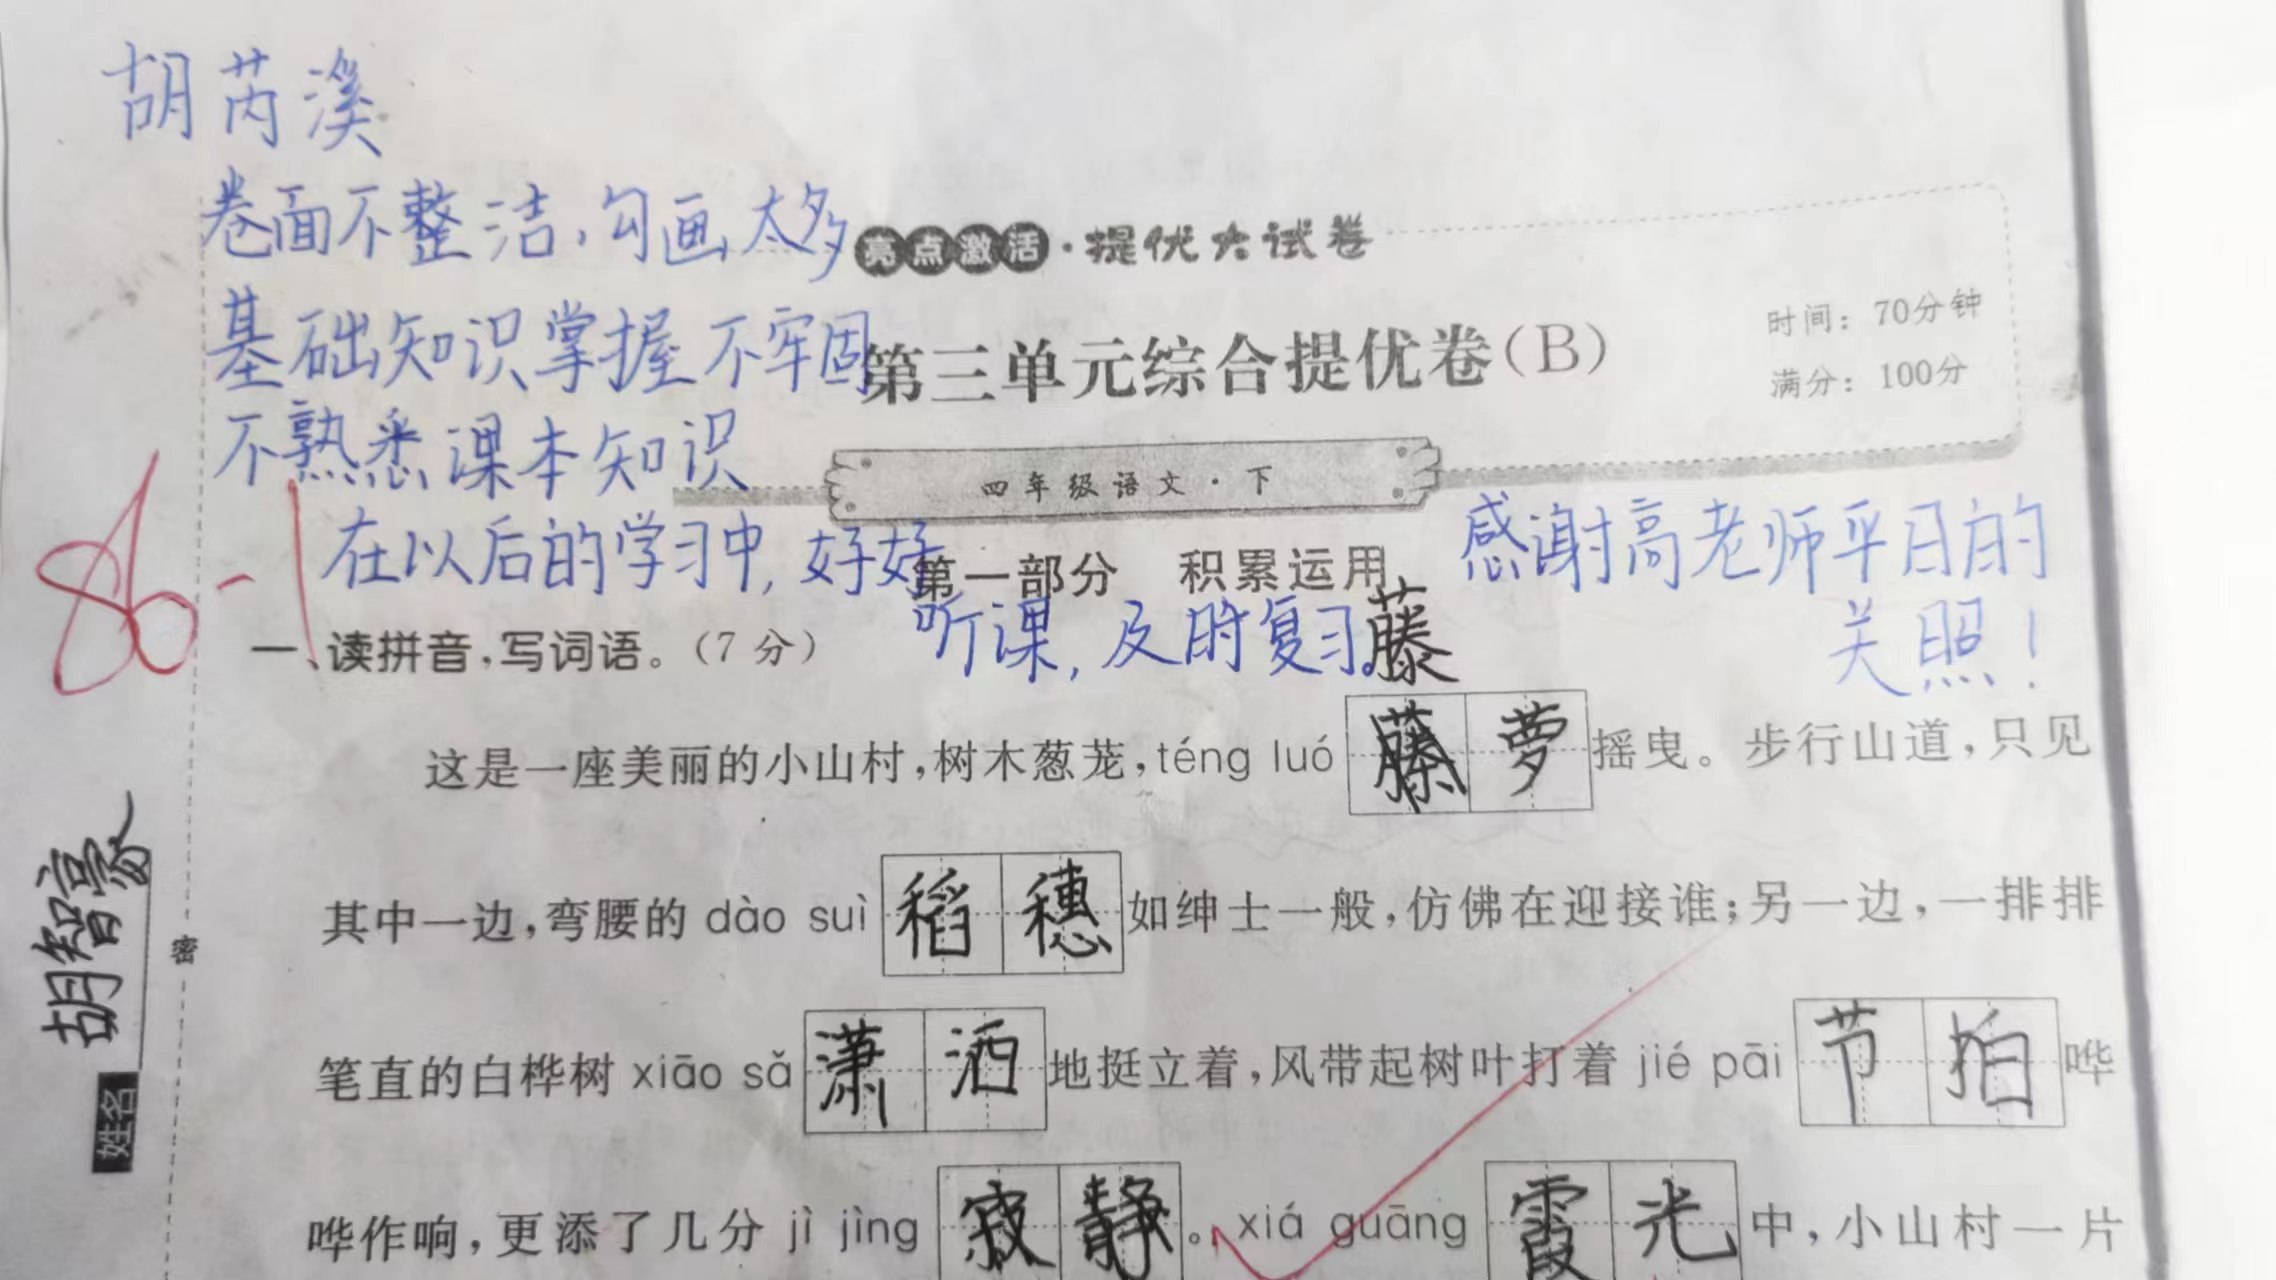 胡芮溪
卷面不整洁,勾画太多
亮点激活·提优大试卷
基础知识掌握不牢固
第三单元综合提优卷(B)
时间:70分钟
满分:100分
不熟悉课本知识
四年级语文·下
在以后的学习中,好好
听课,及时复习。
感谢高老师平日的
关照!
86
-1
第一部分 积累运用
一、读拼音,写词语。(7分)
藤
这是一座美丽的小山村,树木葱茏,téng luó 藤萝摇曳。步行山道,只见
其中一边,弯腰的 dào suì 稻穗如绅士一般,仿佛在迎接谁;另一边,一排排
笔直的白桦树 xiāo sǎ 潇洒地挺立着,风带起树叶打着 jié pāi 节拍哗
哗作响,更添了几分 jì jìng 寂静。xiá guāng 霞光中,小山村一片
姓名 胡智豪
密